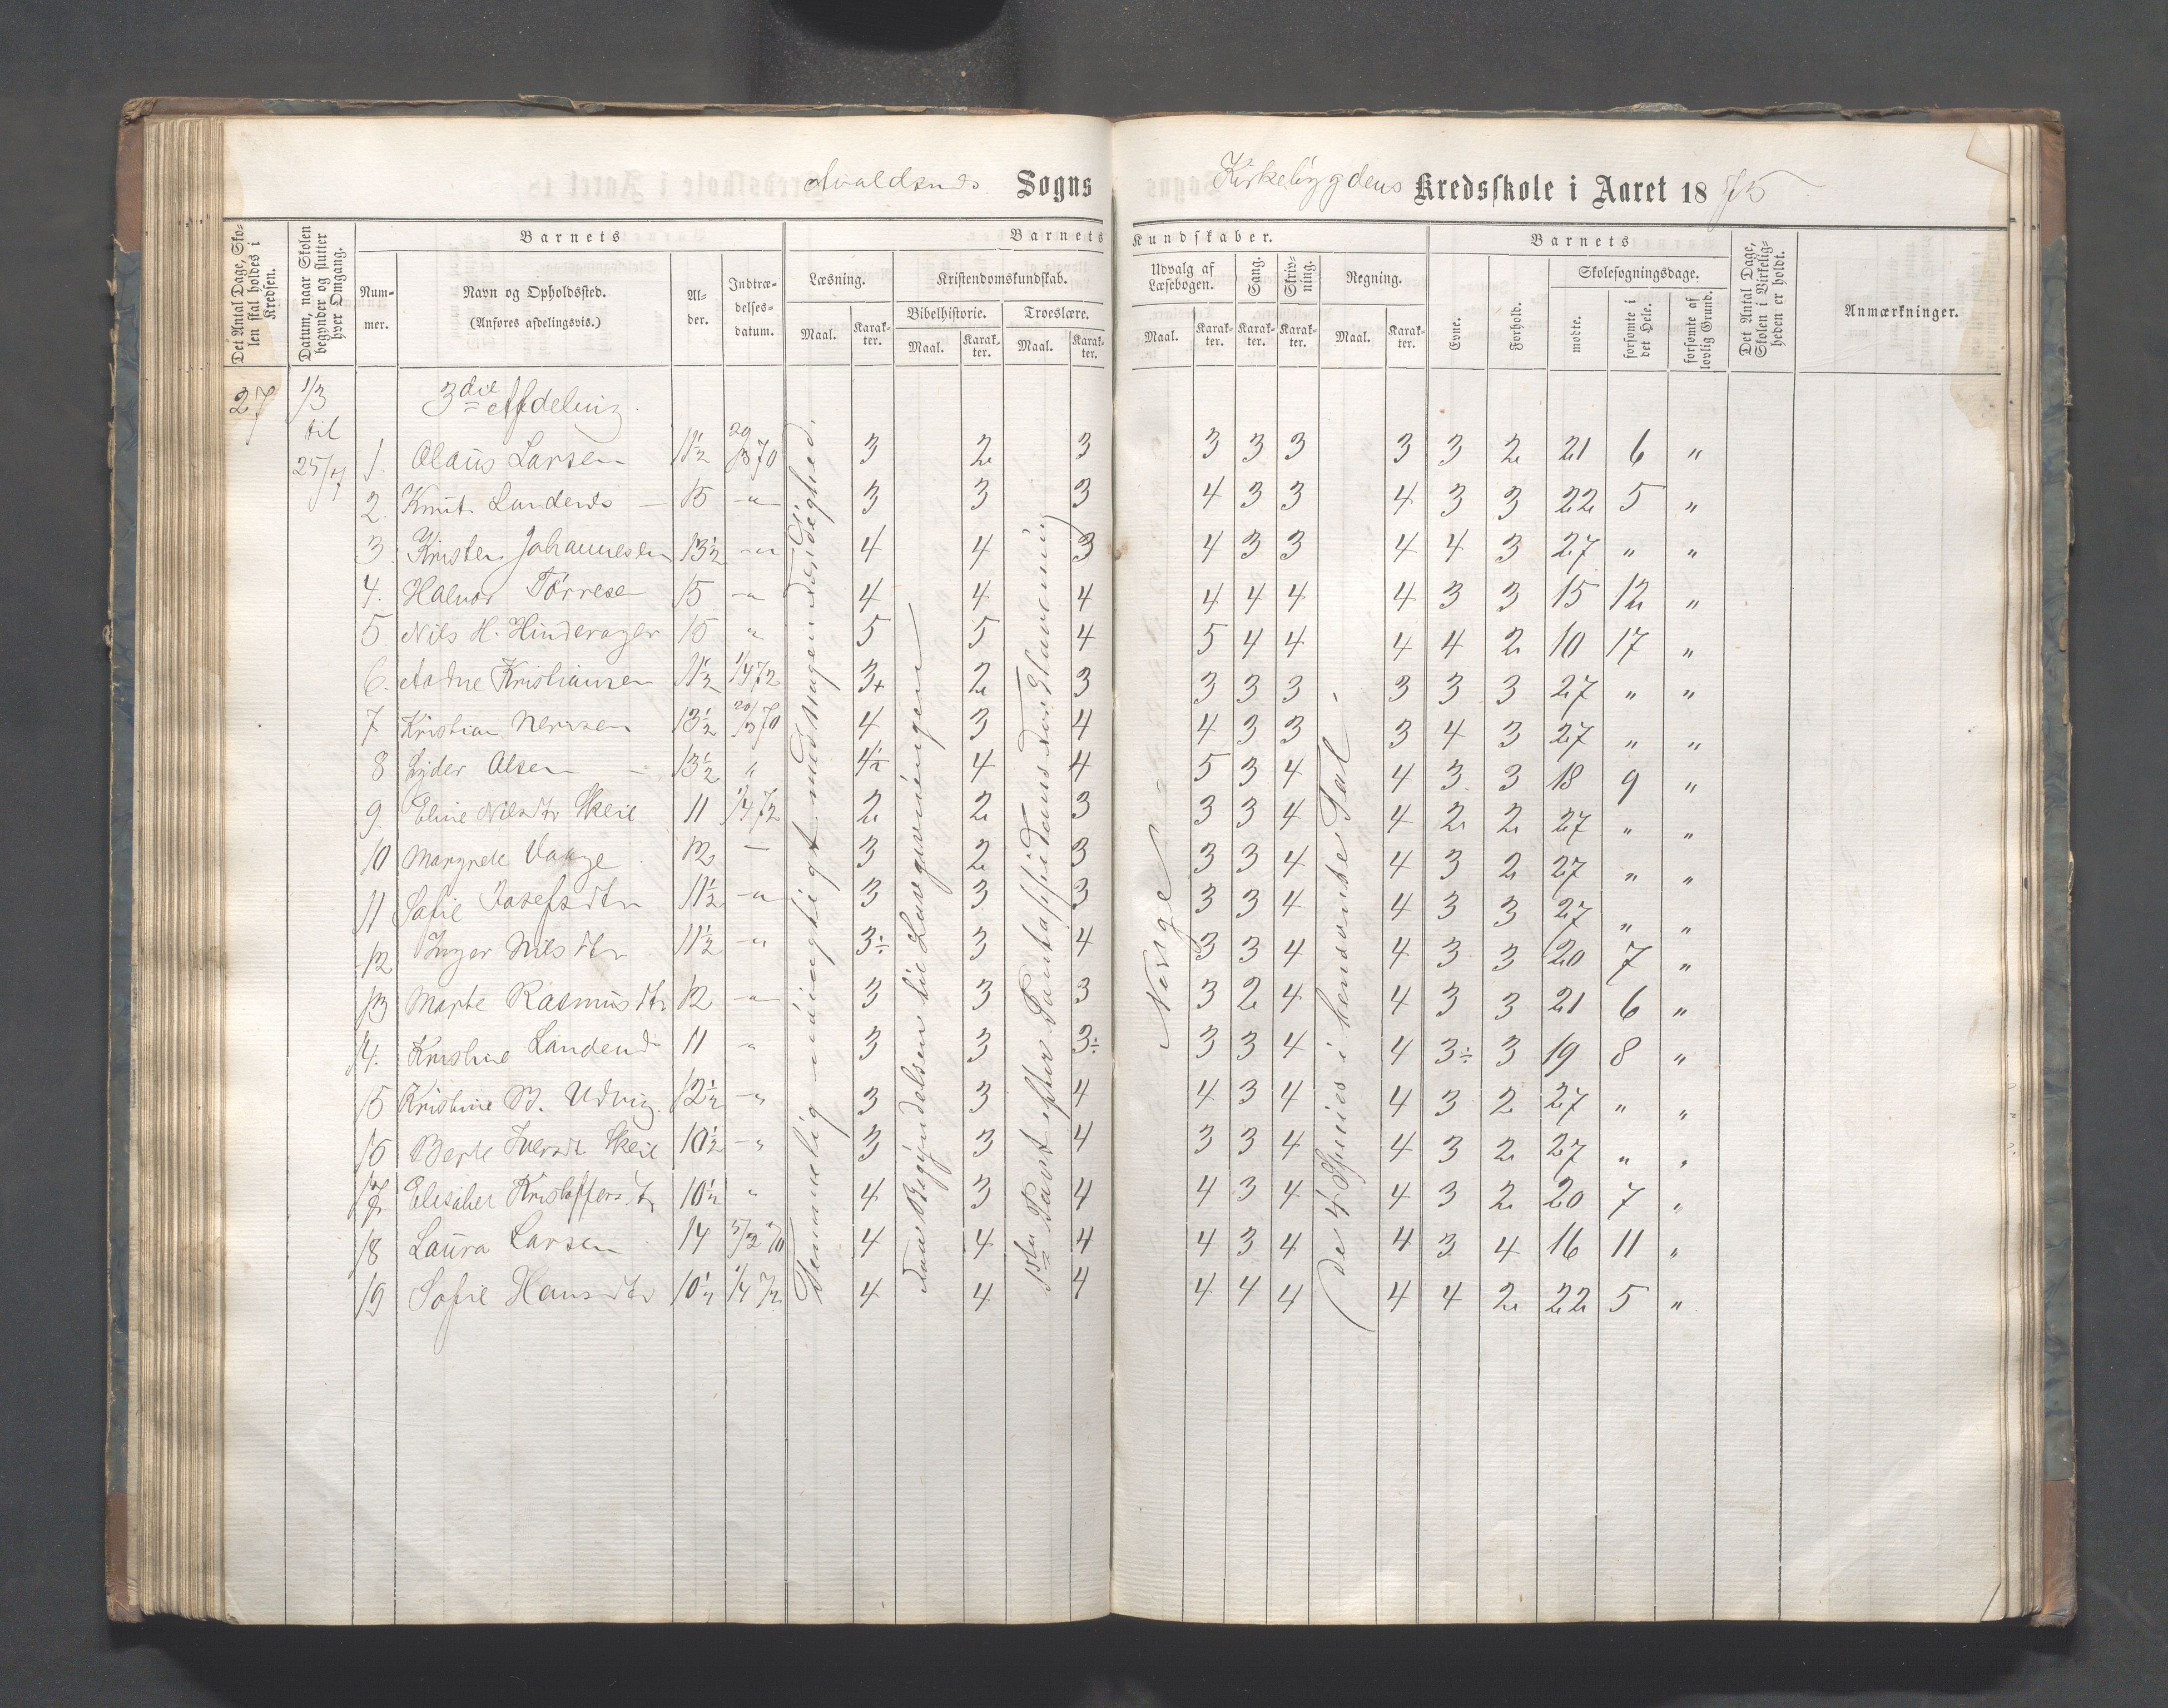 Avaldsnæs Sogns Kirkebygdens Kredsskole i Aaret 1875
Det Antal Dage, Skolen skal holdes i Kredsen.
Datum, naar Skolen begynder og slutter hver Omgang.
Barnets
Barnets Kundskaber.
Barnets
Det Antal Dage, Skolen i Virkeligheden er holdt.
Anmærkninger.
Nummer.
Navn og Opholdssted.
(Anføres afdelingsvis.)
Alder.
Indtrædelsesdatum.
Læsning.
Kristendomskundskab.
Udvalg af Læsebogen.
Sang.
Skrivning.
Regning.
Evne.
Forhold.
Skolesøgningsdage.
Bibelhistorie.
Troeslære.
mødte.
forsømte i det Hele.
forsømte af lovlig Grund.
Maal. Karakter. Maal. Karakter. Maal. Karakter. Maal. Karakter. Karakter. Karakter. Maal. Karakter.
27 1/3 til 25/4
3die Afdeling.
1. Olaus Larsen 11½ 20/3 70 3 2 3 3 3 3 3 3 2 21 6 "
2. Knut Landends 15 " 3 3 3 4 3 3 4 3 3 22 5 "
3. Kristen Johannesen 13½ " 4 4 3 4 3 3 4 4 3 27 " "
4. Halvor Tørresen 15 " 4 4 4 4 4 4 4 3 3 15 12 "
5 Nils H. Hinderager 15 " 5 5 4 5 4 4 4 4 2 10 17 "
6. Aadne Kristiansen 11½ 1/4 72 3+ 2 3 3 3 3 3 3 3 27 " "
7 Kristian 13½ 20/3 70 4 3 4 4 3 3 3 4 3 27 " "
8 Zyder Olsen 13½ " 4½ 4 4 5 3 4 4 3 3 18 9 "
9. Eline Nilsdtr Skeie 11 1/4 72 2 2 3 3 3 4 4 2 2 27 " "
10 Margrete Vaage 12 — 3 2 3 3 3 4 4 3 2 27 " "
11 Sofie Josefsdtr 11½ " 3 3 3 3 3 4 4 3 3 27 " "
12 Inger Nilsdtr 11½ " 3÷ 3 4 3 3 4 4 3 3 20 7 "
13 Marte Rasmusdtr 12 " 3 3 3 3 2 4 4 3 3 21 6 "
14. Kristine Landends 11 " 3 3 3÷ 3 3 4 4 3÷ 3 19 8 "
15 Kristine B. Udvig. 12½ " 3 3 4 4 3 4 4 3 2 27 " "
16 Berte Iversdtr Skeie 10½ " 3 3 4 3 3 4 4 3 2 27 " "
17 Elisabet Kristoffersdtr 10½ " 4 3 4 4 3 4 4 3 2 20 7 "
18 Laura Larsen 14 70 4 4 4 4 3 4 4 3 4 16 11 "
19 Sofie Hansdtr 10½ 1/4 72 4 4 4 4 4 4 4 4 2 22 5 "
Temmelig
Fra Begyndelsen til Lovgivningen
1ste Part efter
Norge
De 4 Spesies i benævnte Tal